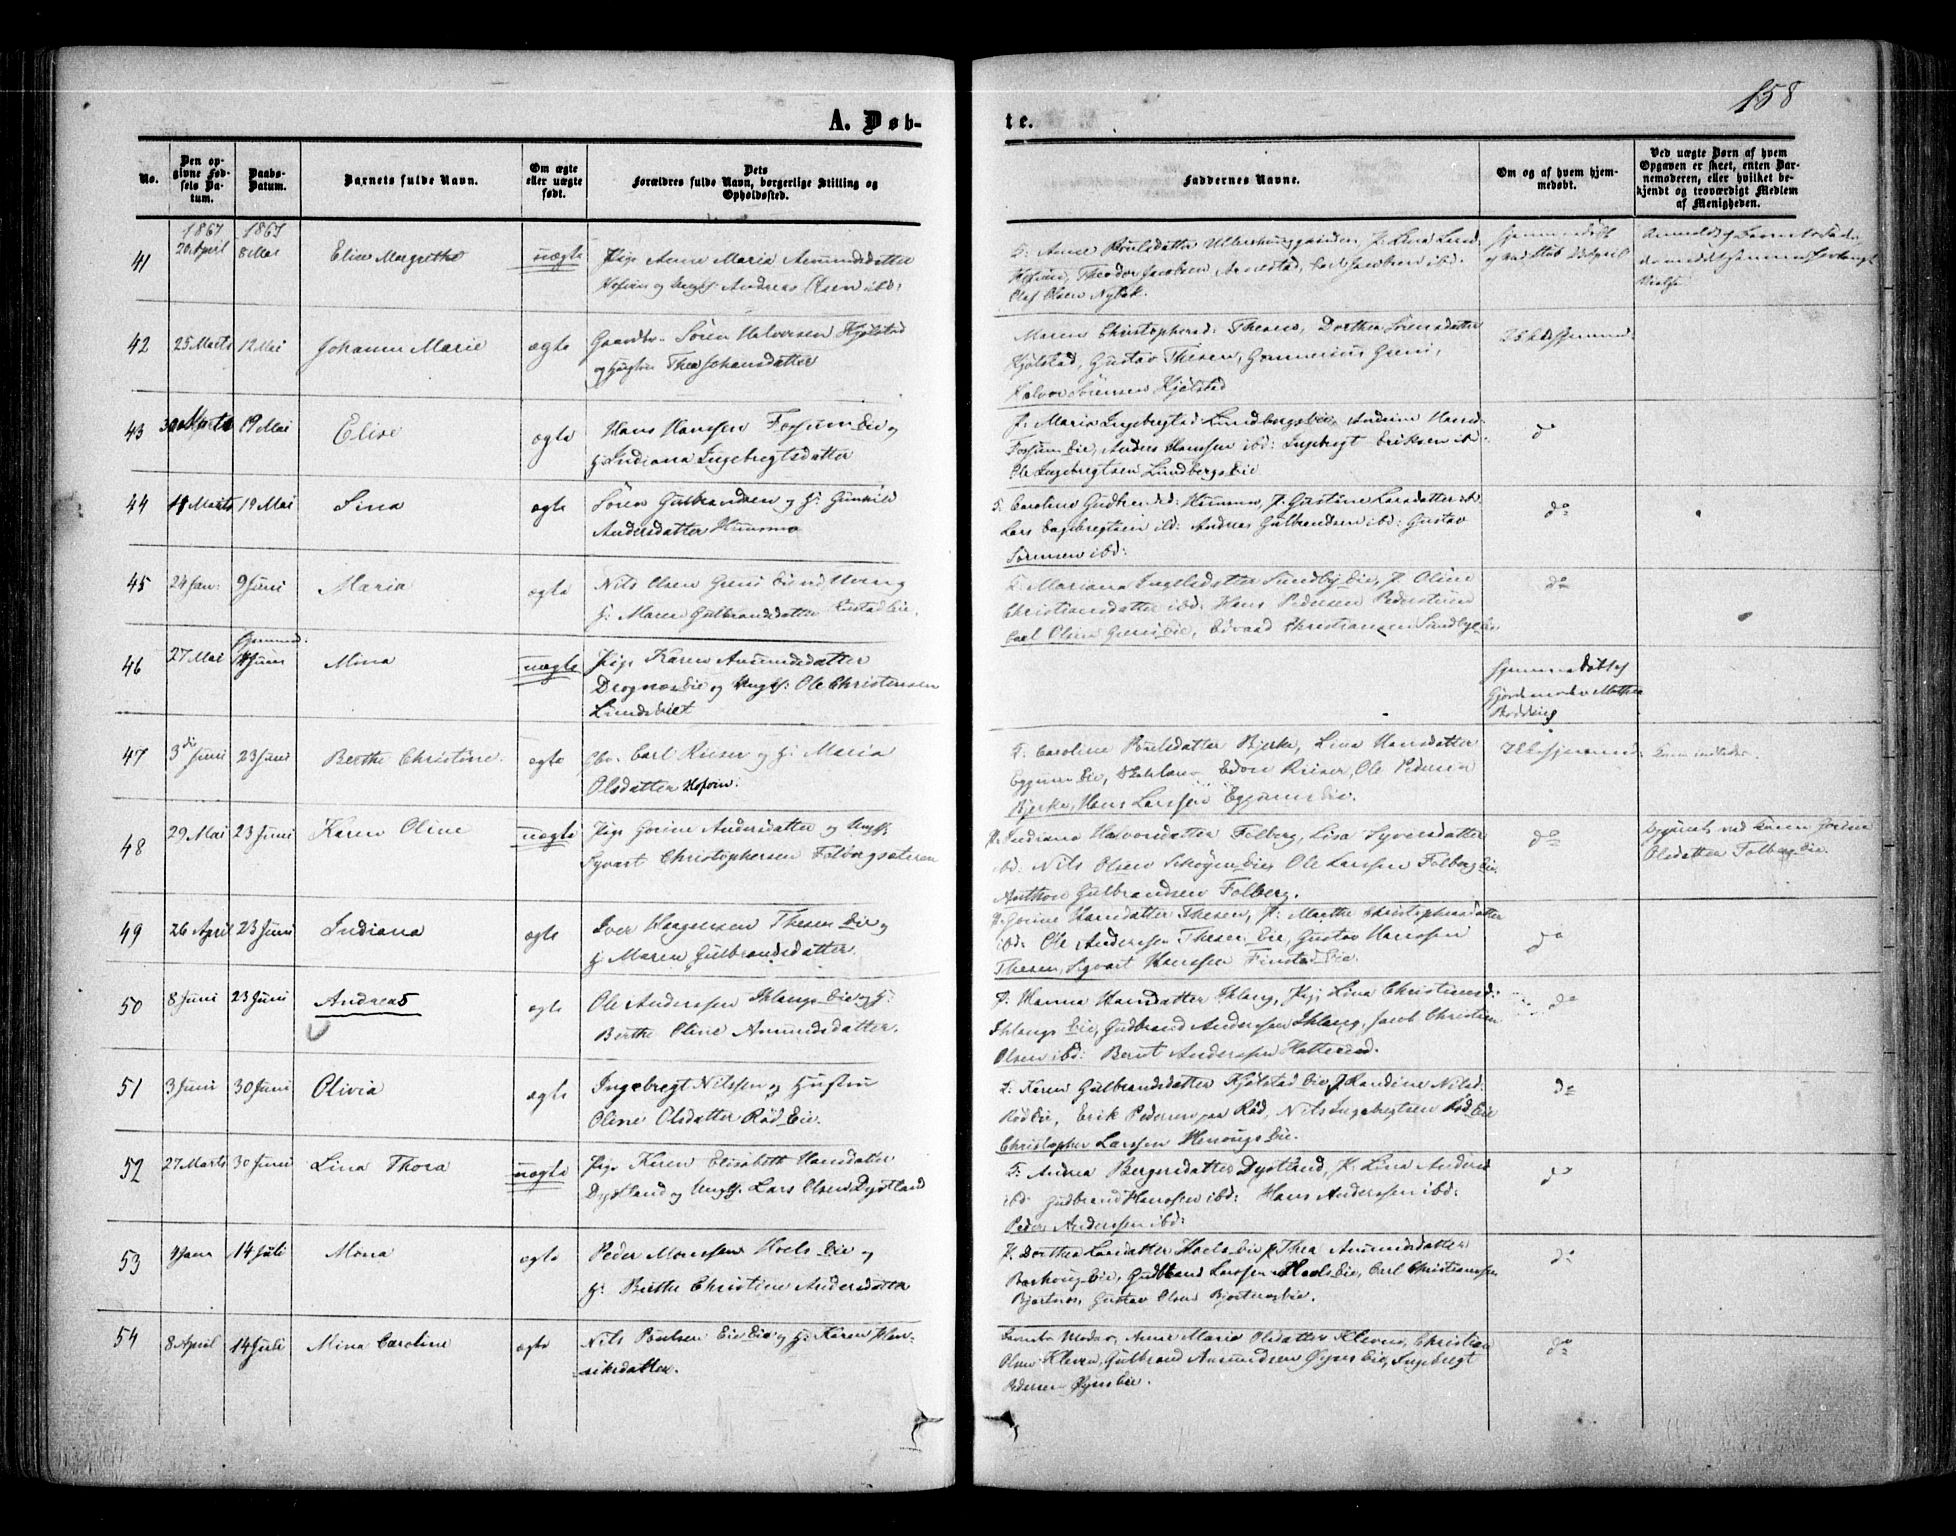 158
A. Døb-
te.
No.
Den op-
givne Fød-
sels Da-
tum.
Daabs-
Datum.
Barnets fulde Navn.
Om ægte
eller uægte
født.
Dets
Forældres fulde Navn, borgerlige Stilling og
Opholdssted.
Faddernes Navne.
Om og af hvem hjem-
medøbt.
Ved uægte Børn af hvem
Opgaven er skeet, enten Bar-
nemoderen, eller hvilket be-
kjendt og troværdigt Medlem
af Menigheden.
1867 1867
41 20 April 8 Mai Elise Margrethe uægte Pige Anne Maria Amundsdatter
Hofvin og Ungk: Andreas Olsen ibd:
F: Anne Poulsdatter P. Lina
Hofvin, Theodor Jacobsen Arnestad, Carl Jacobsen ibd.
Olaf Olsen Nybak.
42 25 Marts 12 Mai Johanne Marie ægte Gaardbr. Søren Halvorsen Kjølstad
og Hustru Thea Johansdatter
Maren Christophersd: Thesen, Dorthea Sørensdatter
Kjølstad, Gustav Thesen, Gunnerius Greni,
Halvor Sørensen Kjølstad
Ikke hjemmed:
43 30 Marts 19 Mai Elise ægte Hans Hanssen Fossum Eie og
H: Indiana Ingebregtsdatter
P: Maria Ingebregtsd Lundbergs Eie, Andrine Hansd
Fossum Eie, Anders Hanssen ibd: Ingebregt Eriksen ibd.
Ole Ingebregtsen Lundbergs Eie
do
44 11 Marts 19 Mai Sina ægte Søren Gulbrandsen og H: Gunhild
Andersdatter Hummo
F. Caroline Gudbrandsd: Hummo, P. Gustine Larsdatter ibd.
Lars Ingebregtsen ibd: Andreas Gulbrandsen ibd: Gustav
Sørensen ibd:
do
45 24 Jan: 9 Juni Maria ægte Nils Olsen Greni Eie
H: Maren Gulbrandsdatter Rustad Eie.
F: Mariana Ingelsdatter Sundby Eie, P. Oline
Christiansdatter ibd: Hans Pedersen Pederstuen
Carl Olsen Greni Eie, Edvard Christiansen Sundby Eie
do
46 27 Mai Juni Mina uægte Pige Karen Amundsdatter
Drognes Eie og Ungk: Ole Christensen
Lundseiet
Hjemmedøbt af
Gjordemoder Mathea
47 3die Juni 23 Juni Berthe Christine. ægte Carl Rieser og H: Maria
Olsdatter Hofvin.
F. Caroline Poulsdatter Bjerke, Lina Hansdatter
Eggum Eie, Edvin Rieser, Ole Pedersen
Bjerke, Hans Larssen Eggums Eie.
Ikke hjemmed:
48 29 Mai 23 Juni Karen Oline uægte Pige Gorine Andersdatter og Ungk:
Syvart Christophersen Folbergsæteren
P. Indiana Halvorsdatter Folberg, Lisa Syversdatter
ibd: Nils Olsen Skogen Eie, Ole Larssen Folberg Eie
Anthon Gulbrandsen Folberg.
do
Opgivet ved Konen Gorine
Olsdatter Folberg Eie.
49 26 April 23 Juni Indiana ægte Iver Hagensen Thesen Eie og
H: Maren Gulbrandsdatter.
P: Gorine Hansdatter Thesen, P: Marthe Christophersdatter
ibd: Ole Anderssen Thesen Eie, Gustav Hanssen
Thesen, Syvart Hanssen Finstad Eie.
do
50 8 Juni 23 Juni Andreas ægte Ole Anderssen Ihlangs Eie og H:
Berthe Oline Amundsdatter.
P. Hanna Hansdatter Ihlang, Pige Lina Christiansd:
Ihlangs Eie, Gudbrand Anderssen Ihlang, Jacob Christian
Olsen ibd: Bernt Anderssen Hatterud.
do
51 3 Juni 30 Juni Olivia ægte Ingebregt Nilssen og Hustru
Oline Olsdatter Rød Eie.
F: Karen Gulbrandsdatter Kjølstad Eie, P Randine Nilsd:
Rød Eie, Erik Pedersen paa Rød, Nils Ingebregtsen Rød Eie
Christopher Larssen Henungs Eie.
do
52 27 Marts 30 Juni Lina Thora uægte Pige Karen Elisabeth Hansdatter
Dystland og Ungk. Lars Olsen Dystland
F: Andrea Bergersdatter Dystland, P. Lina Andersd
ibd Gudbrand Hanssen ibd: Hans Anderssen ibd:
Peder Anderssen ibd:
do
53 4 Janr 14 Juli Mina ægte Peder Monssen Hoels Eie og
H: Berthe Christine Andersdatter
P. Dorthea Larsdatter Hoels Eie P Thea Amundsdatter
Eie, Gudbrand Larssen Hoels Eie, Carl Christianssen
Bjertnes, Gustav Olsen Bjertnes Eie.
do
54 8 April 14 Juli Mina Caroline ægte Nils Poulsen Eie Eie og H: Karen Hen-
riksdatter.
Barnets Moder, Anne Marie Olsdatter Kleven, Christian
Olsen Kleven, Gulbrand Amundsen Øyens Eie, Ingebregt
Pedersen Øyens Eie.
do